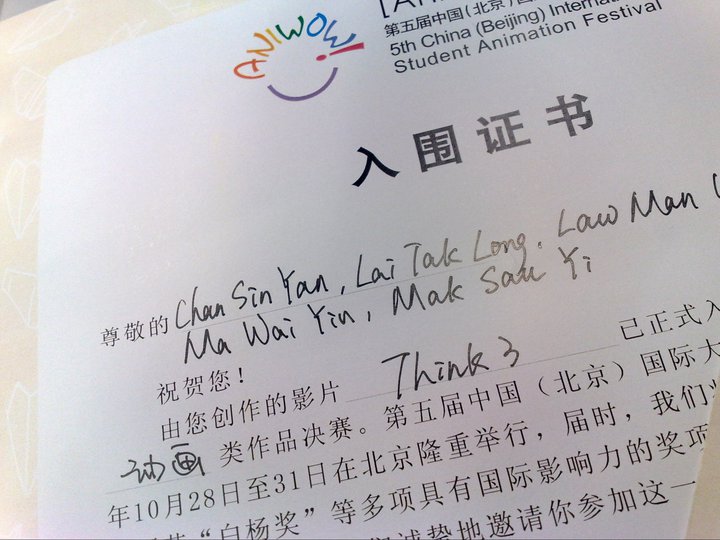 ANIWOW!
第五届中国(北京)国
5th China (Beijing) Internat
Student Animation Festival
入围证书
尊敬的 Chan Sin Yan, Lai Tak Long. Law Man
Ma Wai Yin, Mak Sau Yi
祝贺您!
由您创作的影片 Think 3 已正式入
动画 类作品决赛。第五届中国(北京)国际大
年10月28日至31日在北京隆重举行,届时,我们
“白杨奖”等多项具有国际影响力的奖项
诚挚地邀请你参加这一